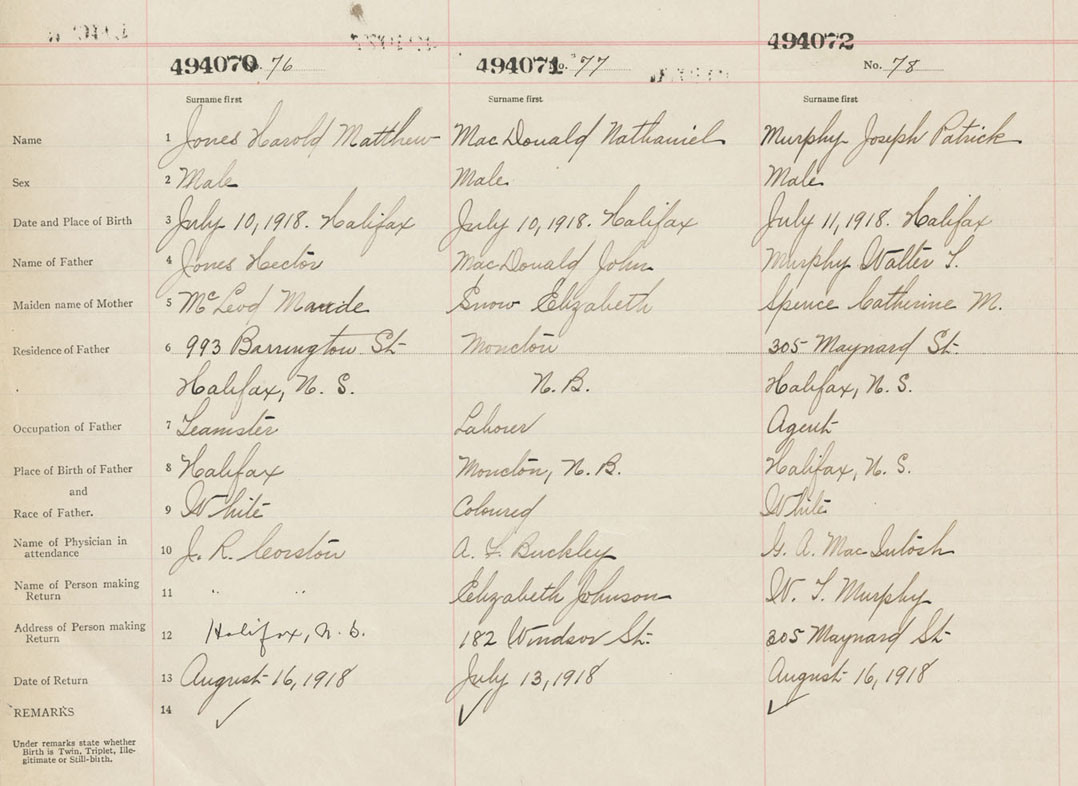 494070 76 494071 No. 77 494072 No. 78
Surname first Surname first Surname first
Name 1 Jones Harold Matthew MacDonald Nathaniel Murphy Joseph Patrick
Sex 2 Male Male Male
Date and Place of Birth 3 July 10, 1918. Halifax July 10, 1918. Halifax July 11, 1918. Halifax
Name of Father 4 Jones Hector MacDonald John Murphy Walter T.
Maiden name of Mother 5 McLeod Maude Snow Elizabeth Spence Catherine M.
Residence of Father 6 993 Barrington St Moncton 305 Maynard St.
Halifax, N. S. N. B. Halifax, N. S.
Occupation of Father 7 Teamster Laborer Agent
Place of Birth of Father 8 Halifax Moncton, N. B. Halifax, N. S.
and
Race of Father. 9 White Coloured White
Name of Physician in attendance 10 J. R. Corston A. F. Buckley G. A. MacIntosh
Name of Person making Return 11 " " Elizabeth Johnson W. T. Murphy
Address of Person making Return 12 Halifax, N. S. 182 Windsor St. 305 Maynard St.
Date of Return 13 August 16, 1918 July 13, 1918 August 16, 1918
REMARKS 14 ✓ ✓ ✓
Under remarks state whether
Birth is Twin, Triplet, Ille-
gitimate or Still-birth.